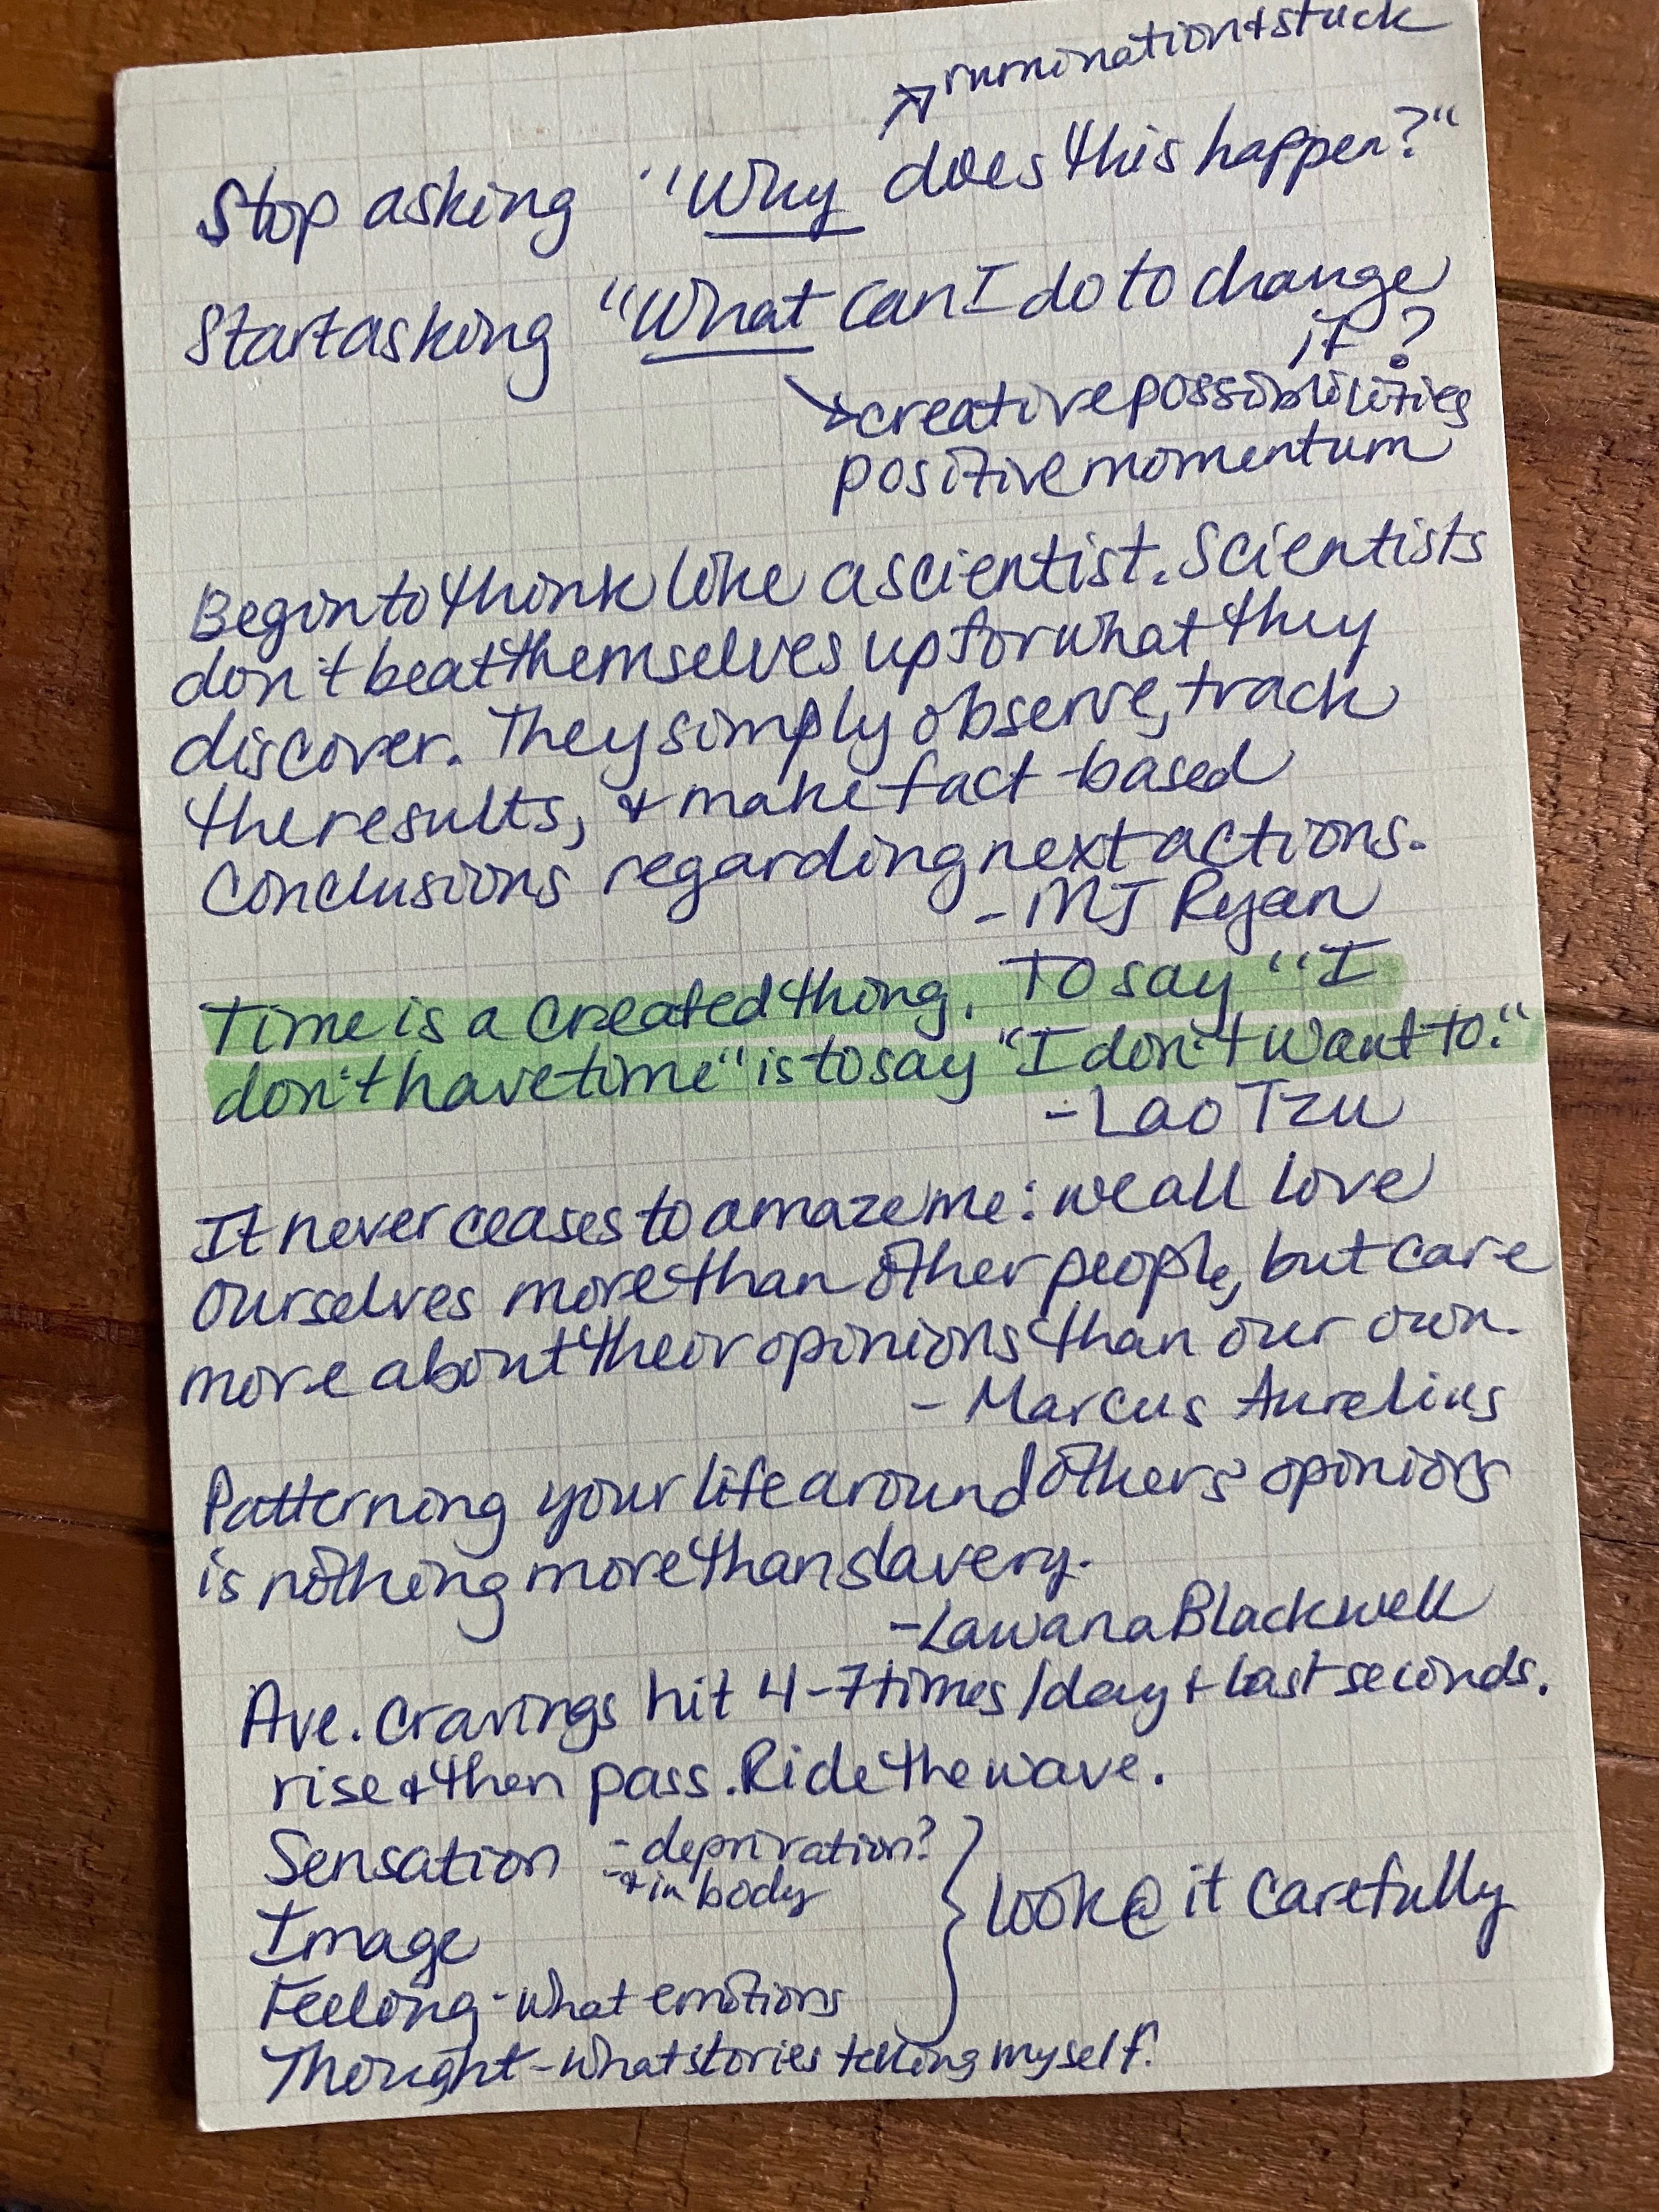 ↗ rumination & stuck
Stop asking "Why does this happen?"
Start asking "What can I do to change
it?
↘ creative possibilities
positive momentum
Begin to think like a scientist. Scientists
don't beat themselves up for what they
discover. They simply observe, track
the results, & make fact-based
conclusions regarding next actions.
- MJ Ryan
Time is a created thing. To say "I
don't have time" is to say "I don't want to."
- Lao Tzu
It never ceases to amaze me: we all love
ourselves more than other people, but care
more about their opinions than our own.
- Marcus Aurelius
Patterning your life around others' opinions
is nothing more than slavery.
- Lawana Blackwell
Ave. cravings hit 4-7 times/day & last seconds.
rise & then pass. Ride the wave.
Sensation - deprivation?
- & in body
Image
Feeling - what emotions
Thought - what stories telling myself.
} look @ it carefully